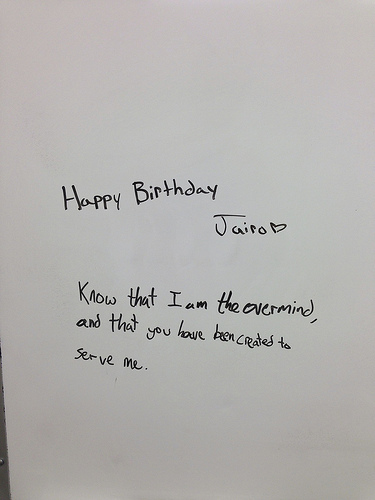 Happy Birthday
Jairo♡
Know that I am the overmind,
and that you have been created to
serve me.